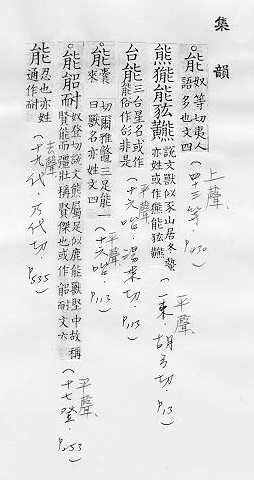 集韻
。能 奴等切夷人語多也文四 (四十三等·p430) 上聲
熊能 說文獸似豕山居冬蟄亦姓或作熊能 (一東·胡弓切·p13) 平聲
台能 三台星名或作能俗作非是 (十六咍·湯來切·p113) 平聲
。能 囊來切爾雅鼈三足能一曰獸名亦姓文四 (十六咍·p113) 平聲
。能耐 奴登切說文能屬足似鹿能獸堅中故稱賢能而彊壯稱賢傑也或作耐文六 (十七登·p253) 平聲
能 忍也亦姓通作耐 (十九代·乃代切·p535) 去聲